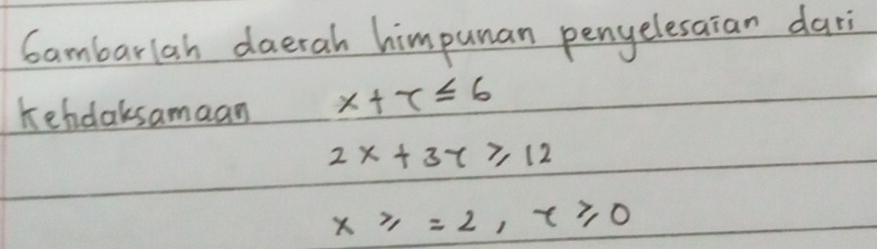 Gambarlah daerah himpunan penyelesaian dari
Ketidaksamaan x + y ≤ 6
2x + 3y ≥ 12
x ≥ = 2, y ≥ 0